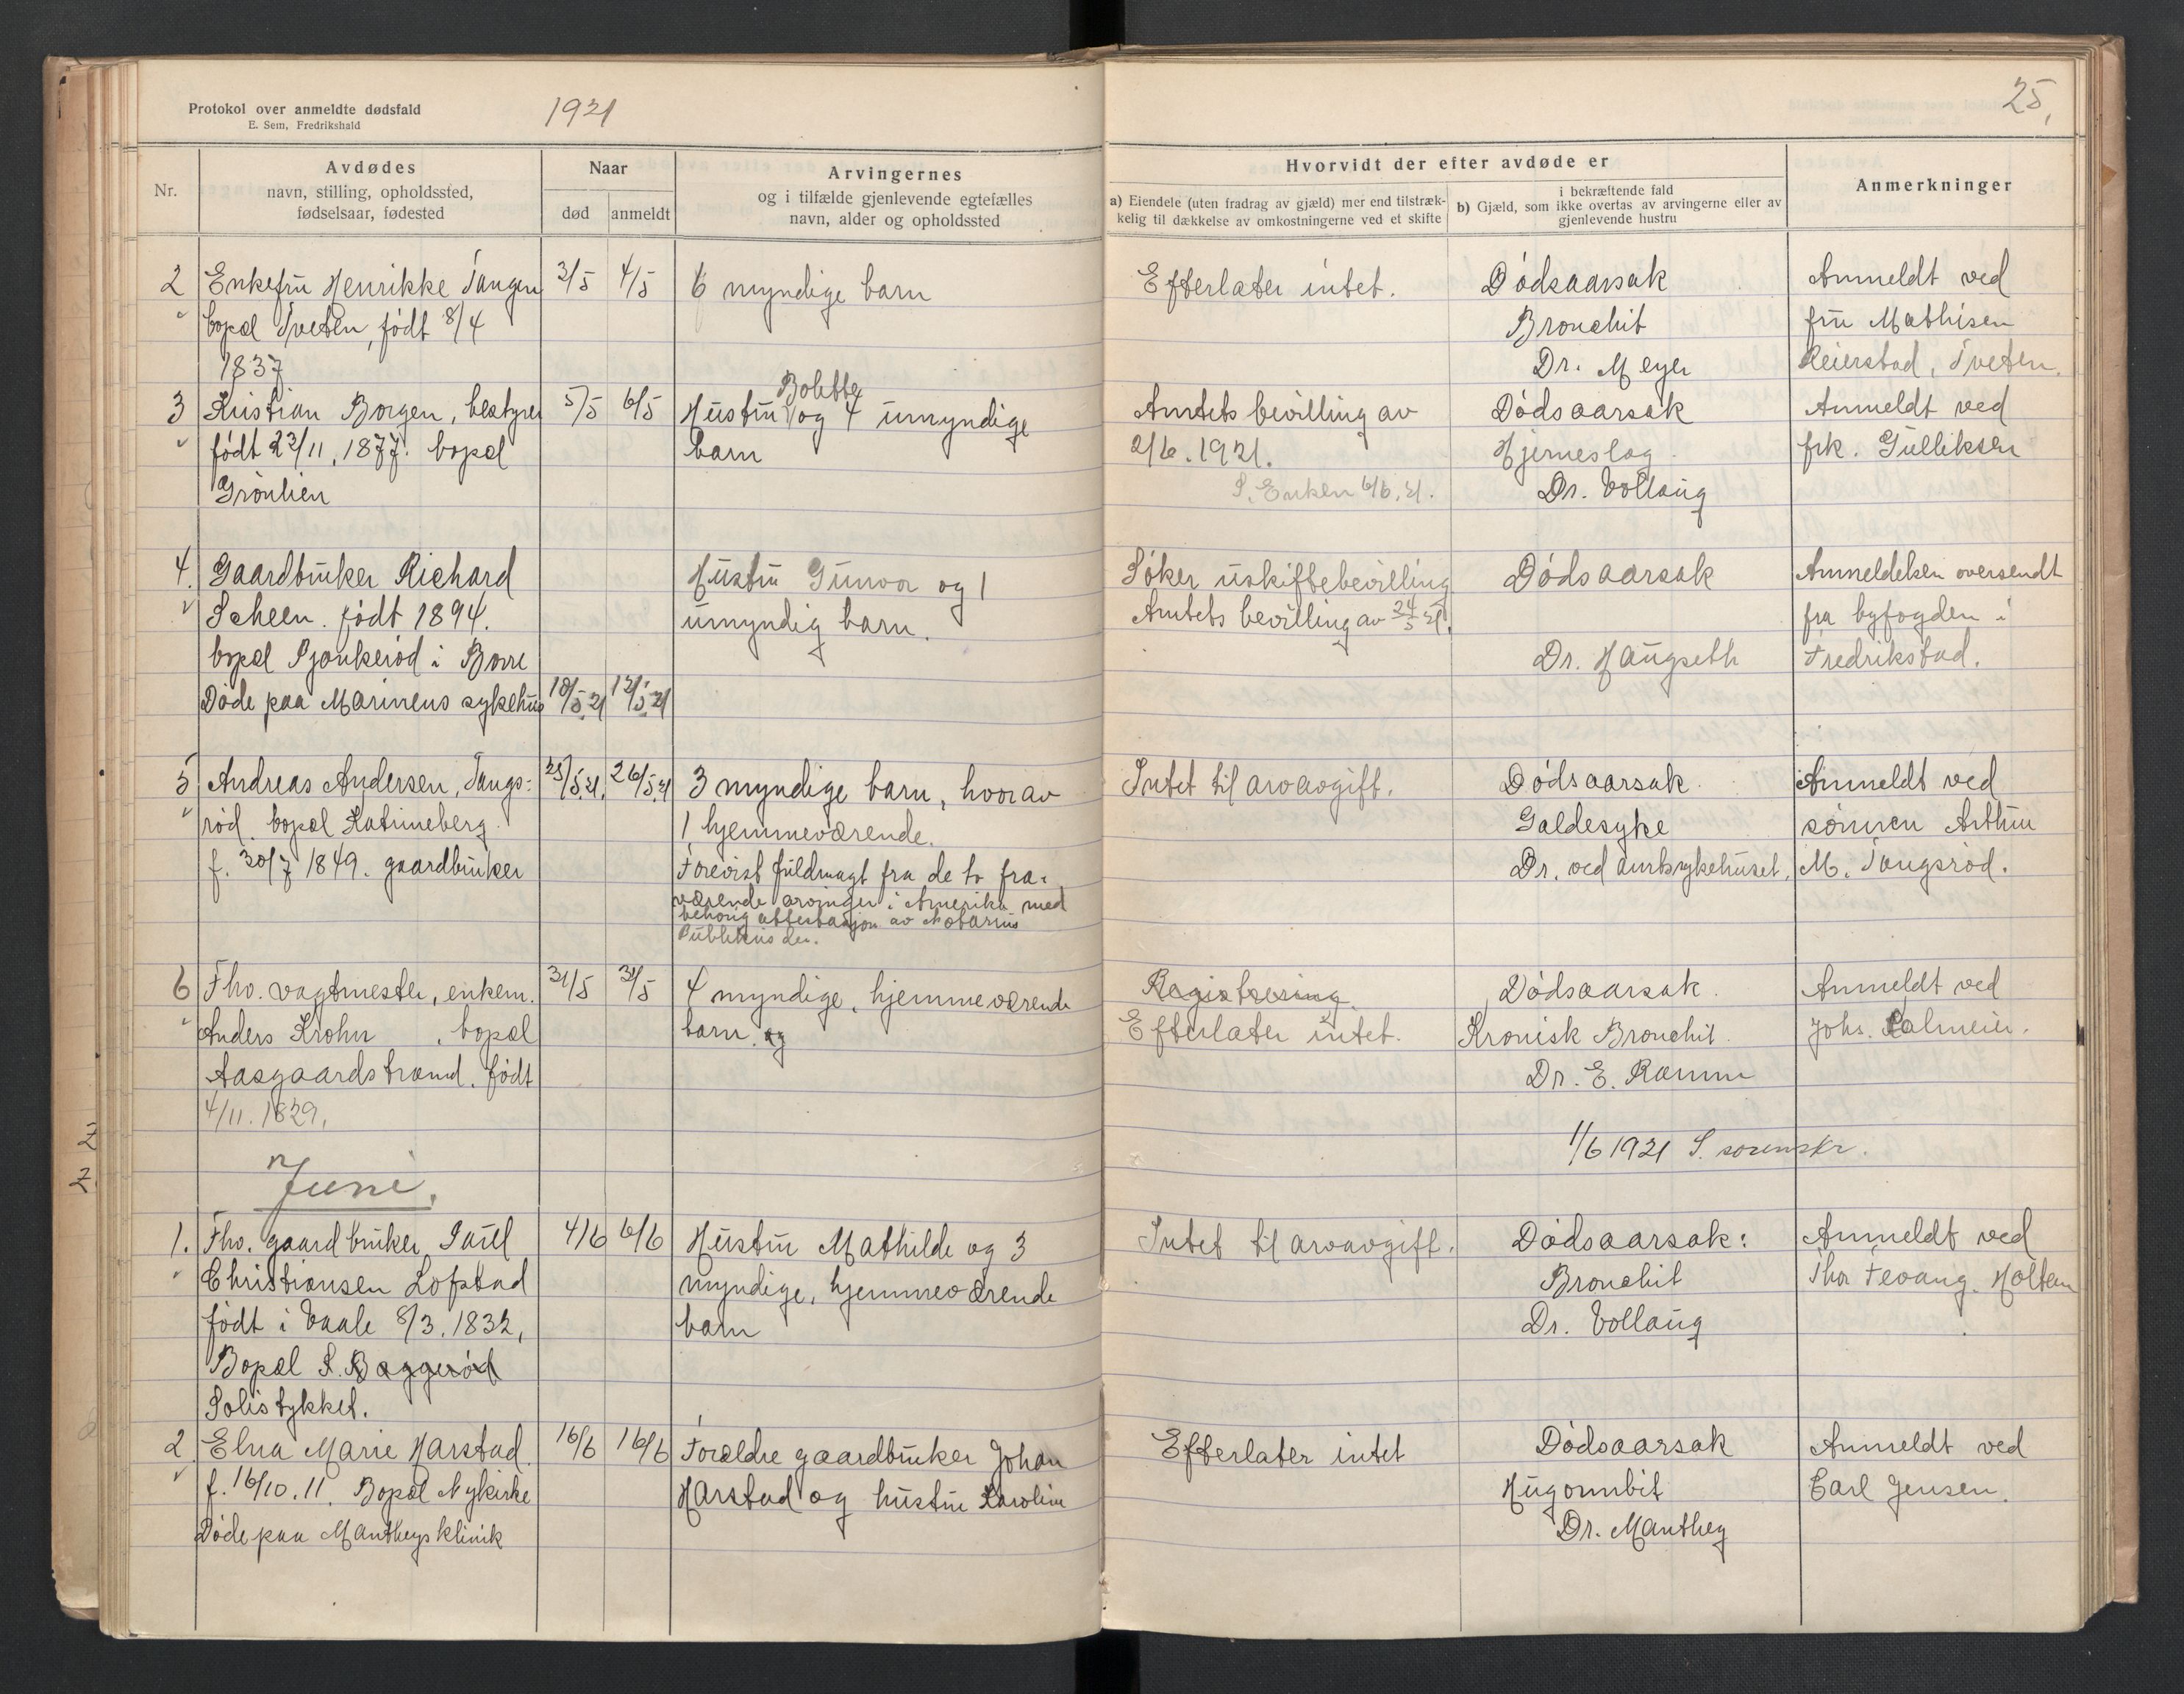 Protokol over anmeldte dødsfald
E. Sem, Fredrikshald
1921
25,
Nr.
Avdødes
navn, stilling, opholdssted,
fødselsaar, fødested
Naar
død
anmeldt
Arvingernes
og i tilfælde gjenlevende egtefælles
navn, alder og opholdssted
Hvorvidt der efter avdøde er
a) Eiendele (uten fradrag av gjæld) mer end tilstræk-
kelig til dækkelse av omkostningerne ved et skifte
i bekræftende fald
b) Gjæld, som ikke overtas av arvingerne eller av
gjenlevende hustru
Anmerkninger
2 Enkefru Henrikke Tangen 3/5 4/5 6 myndige barn Efterlater intet. Dødsaarsak Anmeldt ved
bopæl Tveten, født 8/4 Bronchit fru Mathisen
1837 Dr. Meyer Reierstad, Tveten.
Bolette
3 Kristian Borgen, bestyrer 5/5 6/5 Hustru og 4 umyndige Amtets bevilling av Dødsaarsak Anmeldt ved
født 23/11, 1877. bopæl barn 2/6. 1921. Hjerneslag frk. Gulliksen
Grønlien S. Enken 6/6.21. Dr. Vollaug
4. Gaardbruker Richard Hustru Gunvor og 1 Søker uskiftebevilling Dødsaarsak Anmeldelsen oversendt
Scheen. født 1894. umyndig barn. Amtets bevilling av 24/5 21. fra byfogden i
bopæl Sjonkerød i Borre Dr. Haugseth Fredrikstad.
Døde paa Marinens sykehus 10/5.21 12/5.21
5 Andreas Andersen, Tangs- 25/5.21. 26/5.21 3 myndige barn, hvorav Intet til arvavgift. Dødsaarsak. Anmeldt ved
rød. bopæl Katrineberg. 1 hjemmeværende. Galdesyke sønnen Arthur
f. 30/7 1849. gaardbruker Forevist fuldmagt fra de to fra- Dr. ved amtssykehuset. M. Tangsrød.
værende arvinger i Amerika med
behørig attestasjon av Notarius
Publicus der.
6 Fhv. vagtmester, enkem. 31/5 31/5 4 myndige, hjemmeværende Registrering. Dødsaarsak. Anmeldt ved
Anders Krohn, bopæl barn. og Efterlater intet. Kronisk Bronchit. Johs.
Aasgaardstrand. født Dr. E. Ramm
4/11. 1829.
1/6 1921 S. sorenskr.
Juni.
1. Fhv. gaardbruker Paul 4/6 6/6 Hustru Mathilde og 3 Intet til arvavgift. Dødsaarsak: Anmeldt ved
Christiansen Lofstad myndige, hjemmeværende Bronchit Thor Fevang. Holtan
født i Vaale 8/3. 1832, barn Dr. Vollaug
Bopæl S. Baggerød
Solistykket.
2 Elna Marie Harstad. 16/6 16/6 Forældre gaardbruker Johan Efterlater intet Dødsaarsak Anmeldt ved
f. 16/10. 11. Bopæl Nykirke Harstad og hustru Karoline Hugormbit Carl Jensen.
Døde paa Mantheys klinik Dr. Manthey